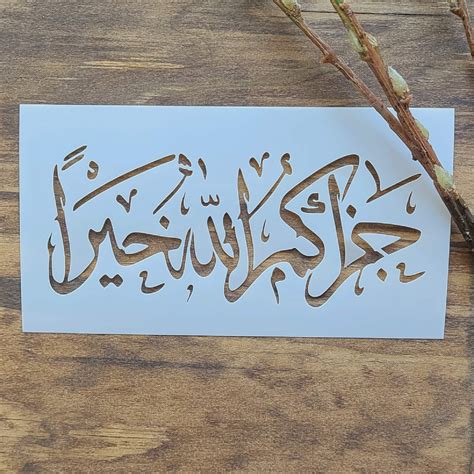 جزاكم الله خيراً